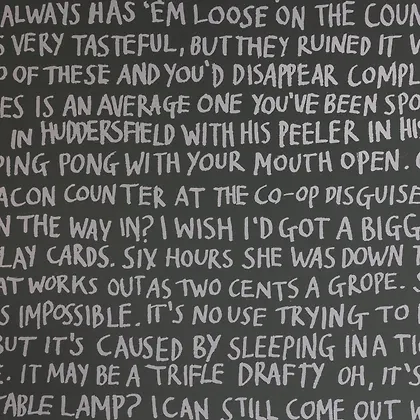 ALWAYS HAS 'EM LOOSE ON THE COU
S VERY TASTEFUL, BUT THEY RUINED IT
OF THESE AND YOU'D DISAPPEAR COMPL
ES IS AN AVERAGE ONE YOU'VE BEEN SPO
IN HUDDERSFIELD WITH HIS PEELER IN HI
PING PONG WITH YOUR MOUTH OPEN.
ACON COUNTER AT THE CO-OP DISGUISE
N THE WAY IN? I WISH I'D GOT A BIGG
LAY CARDS. SIX HOURS SHE WAS DOWN T
AT WORKS OUT AS TWO CENTS A GROPE. S
S IMPOSSIBLE. IT'S NO USE TRYING TO
BUT IT'S CAUSED BY SLEEPING IN A TI
E. IT MAY BE A TRIFLE DRAFTY OH, IT'S
TABLE LAMP? I CAN STILL COME OUT I